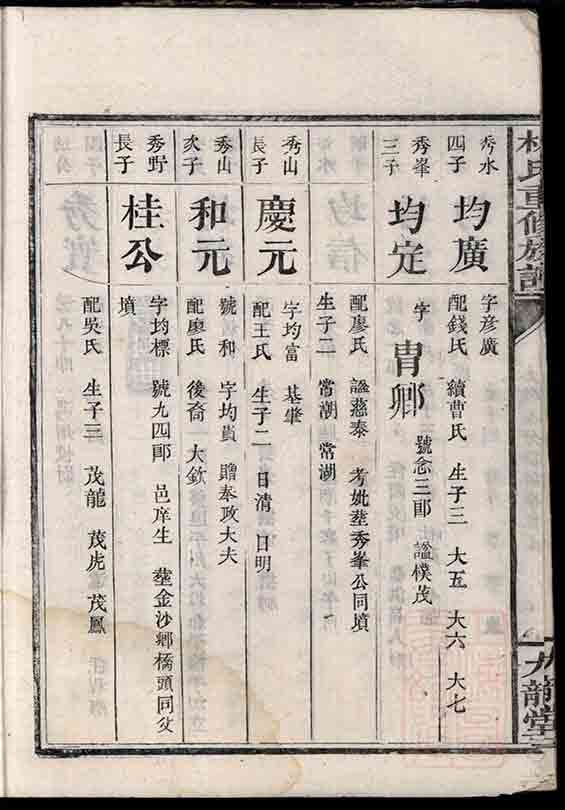 氏重修族譜
九龍堂
秀水
四子
均廣
字彦廣
配錢氏 續曹氏 生子三 大五 大六 大七
秀峯
三子
均定
字胄卿 號念三郎 謚樸茂
配廖氏 謚慈泰 考妣塟秀峯公同墳
生子二 常潮 常湖
秀山
長子
慶元
字均富 基肇
配王氏 生子二 日清 日明
秀山
次子
和元
號 和 字均貴 贈奉政大夫
配廖氏 後裔 大欽
秀野
長子
桂公
字均標 號九四郎 邑庠生 塟金沙鄉橋頭同父
墳
配吳氏 生子三 茂龍 茂虎 茂鳳